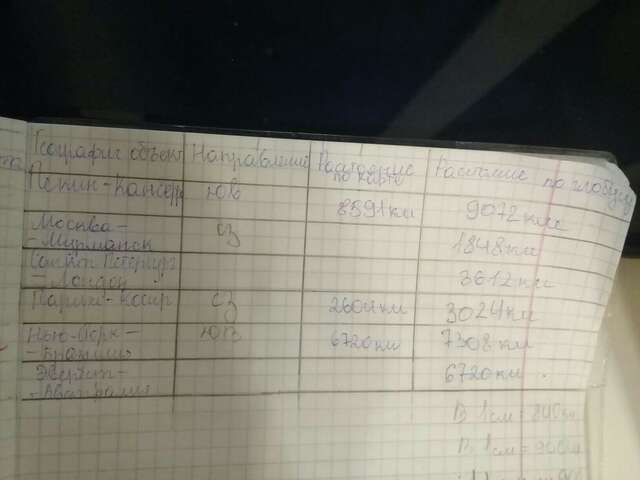 Географич объект Направление Расстояние по карте Расстояние по глобусу
Пекин-Канберр ЮВ 8591км 9072км
Москва-
-Мурманск СЗ 1848км
Санкт Петербург
-Лондон 3612км
Париж- СЗ 2604км 3024км
Нью-Йорк- ЮВ 6720км 7308км
Эверест- 6720км
В 1см=840км
В 1см=